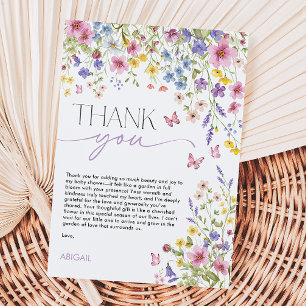 THANK
you
Thank you for adding so much beauty and joy to
my baby shower—it felt like a garden in full
bloom with your presence! Your warmth and
kindness truly touched my heart, and I'm deeply
grateful for the love and generosity you've
shared. Your thoughtful gift is like a cherished
flower in this special season of our lives. I can't
wait for our little one to arrive and grow in the
garden of love that surrounds us.
Love,
ABIGAIL